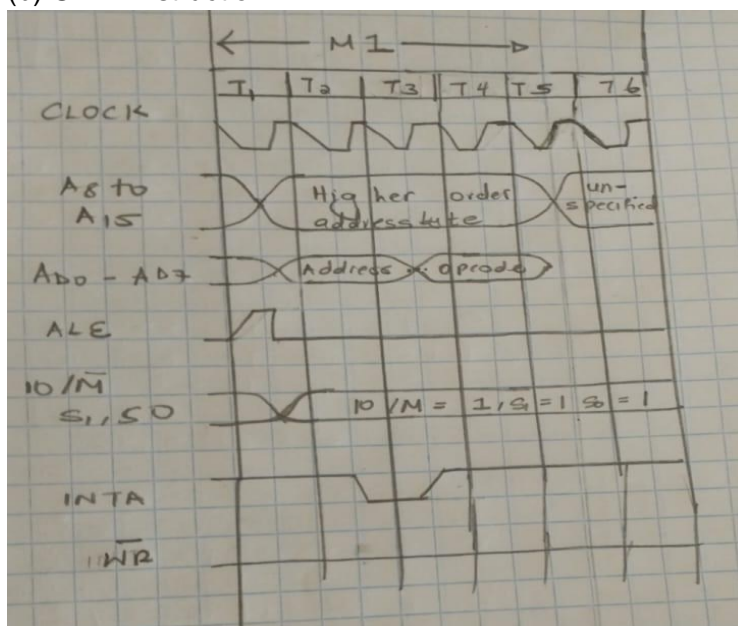 M1
T1 T2 T3 T4 T5 T6
CLOCK
A8 to
A15
Higher order
address byte
un-
specified
AD0 - AD7
Address opcode
ALE
IO/M̅
S1, S0
IO/M = 1, S1 = 1 S0 = 1
INTA
W̅R̅